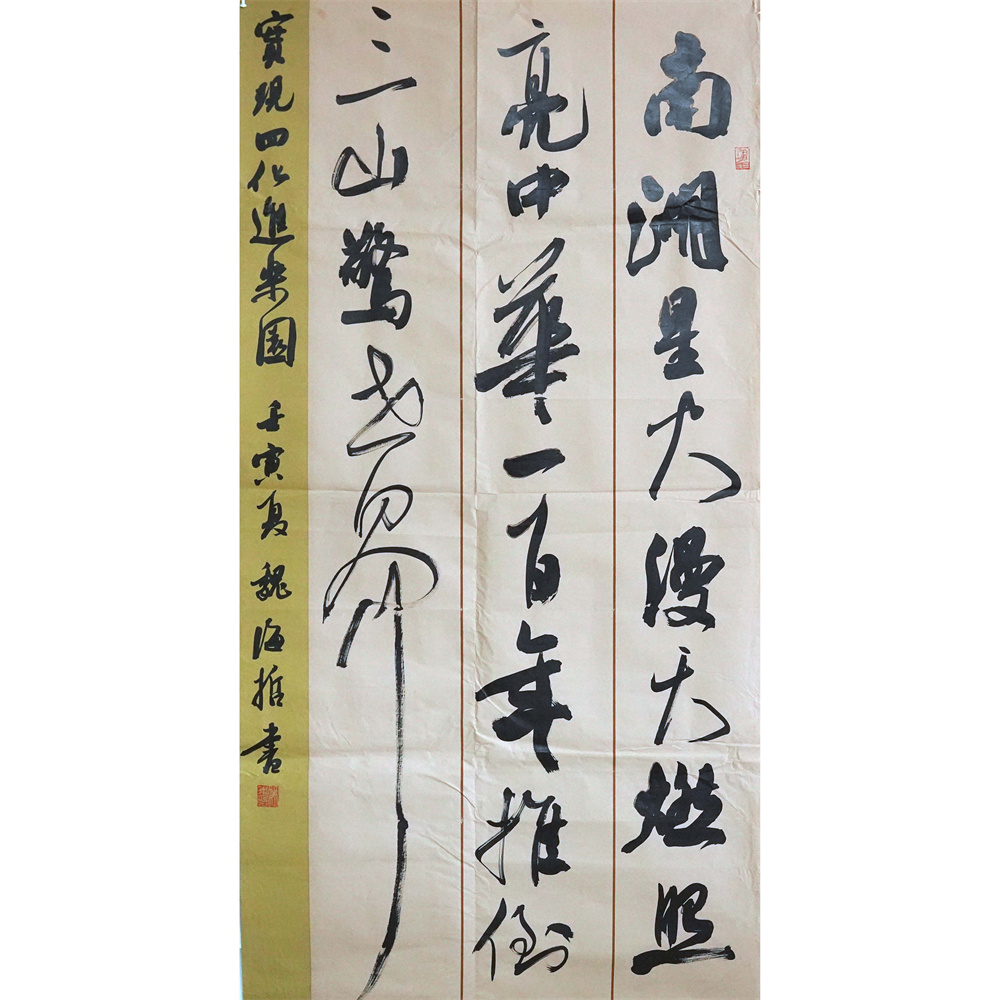 南湖星火漫天燃照
亮中華一百年推倒
三山驚世界
實現四化進樂園 壬寅夏 魏海推書